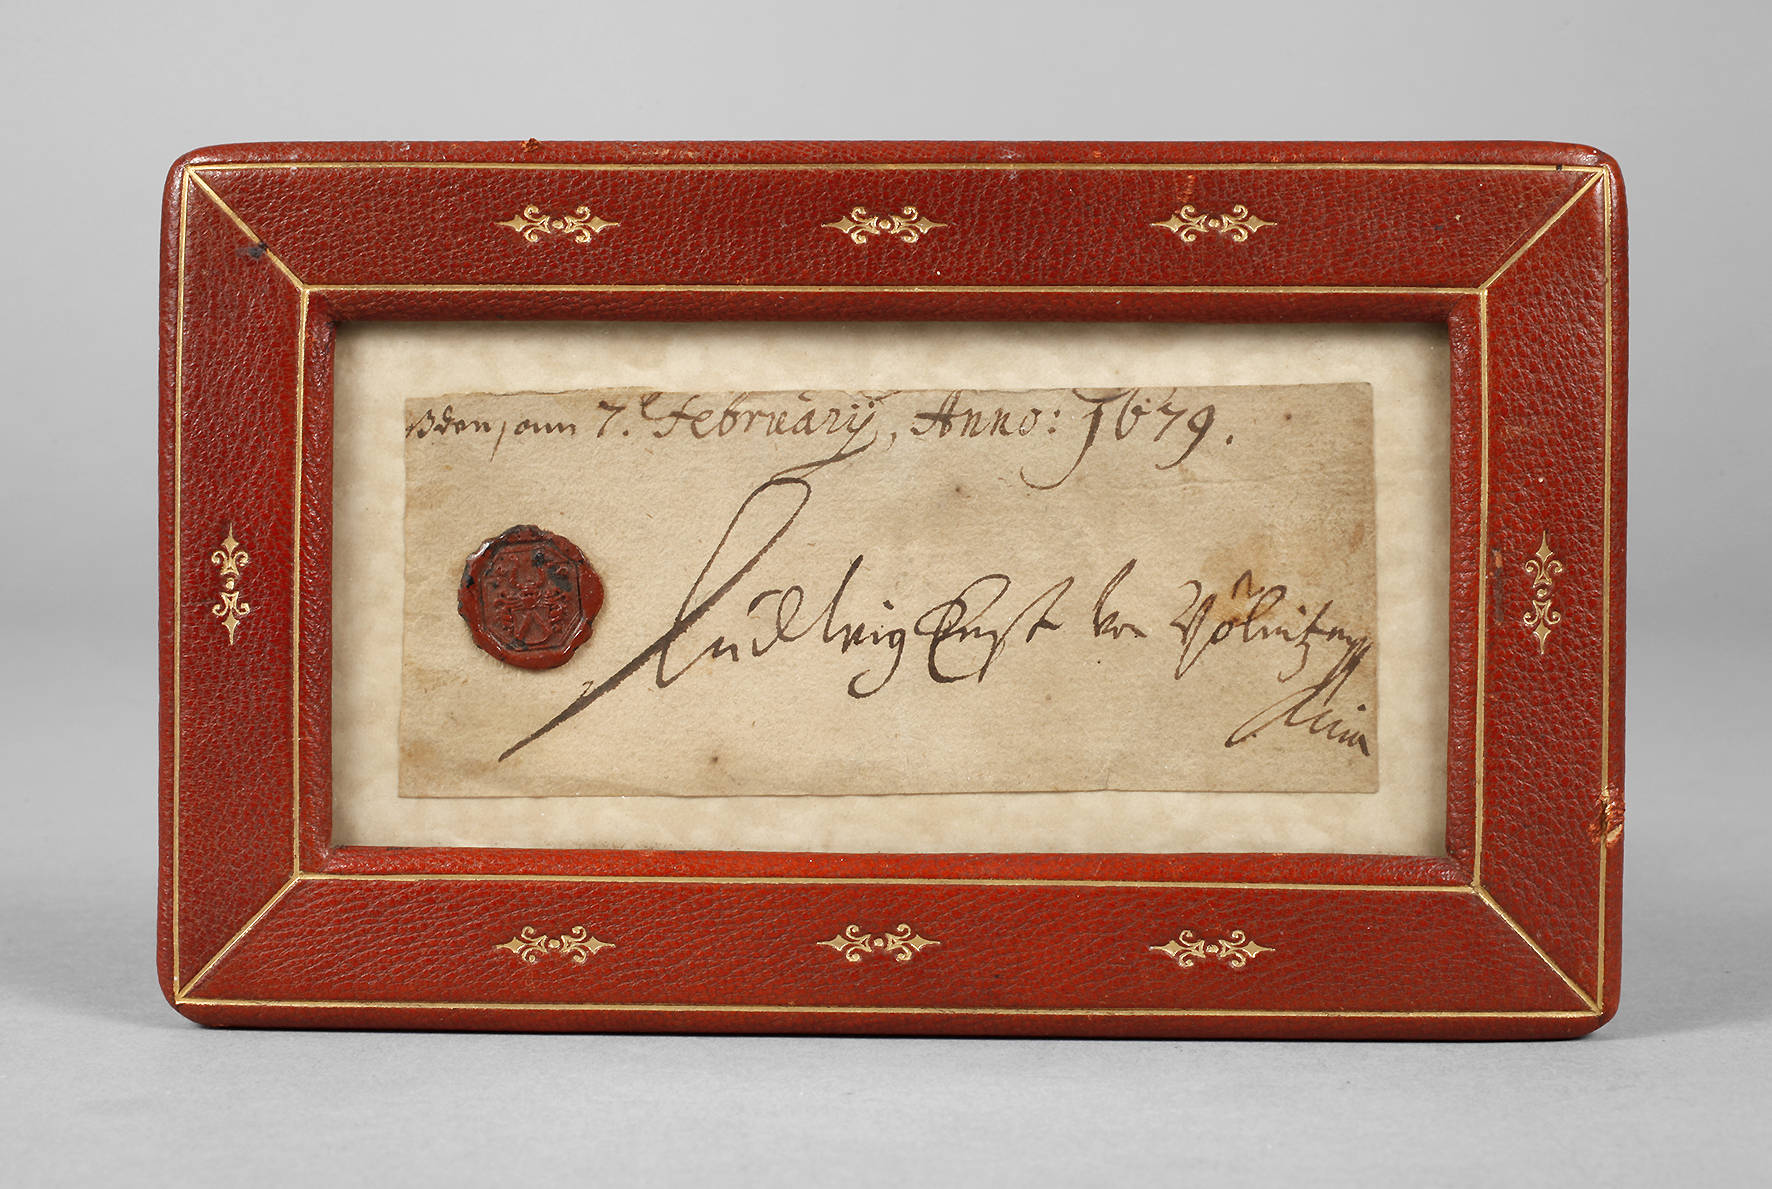 ßden, am 7.t February, Anno: 1679.
Ludwig Ernst von Pölnitz